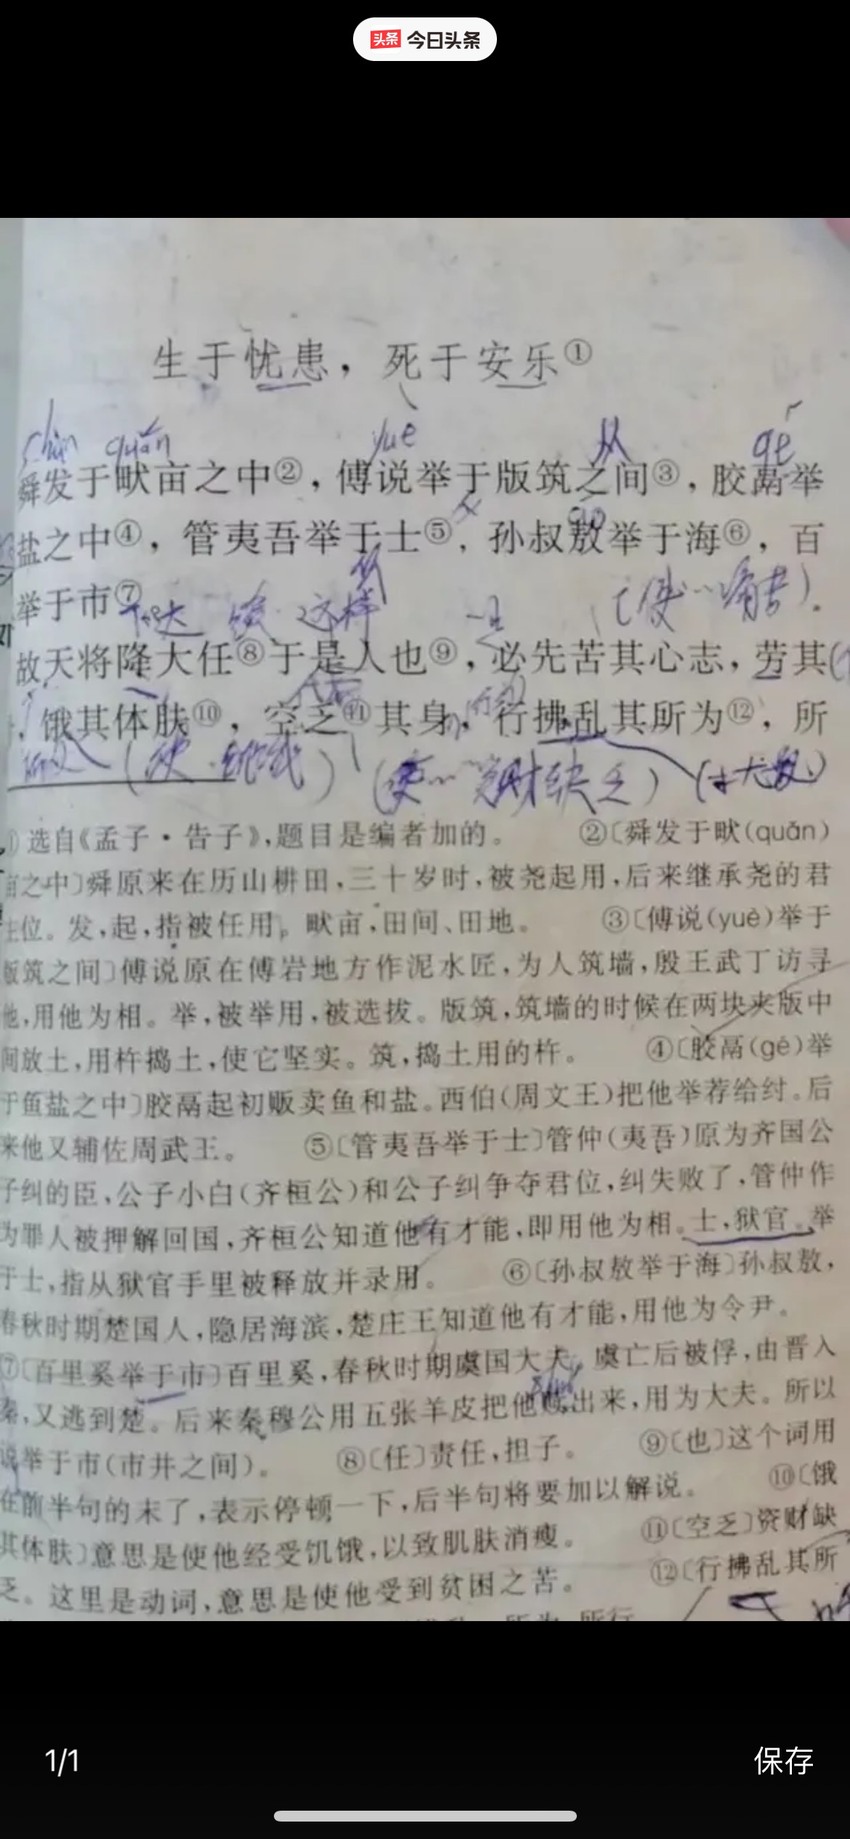 头条 今日头条
生于忧患，死于安乐①
quǎn yuè 从 gé
舜发于畎亩之中②，傅说举于版筑之间③，胶鬲举
盐之中④，管夷吾举于士⑤，孙叔敖举于海⑥，百
举于市⑦
这样
故天将降大任⑧于是人也⑨，必先苦其心志，劳其
饿其体肤⑩，空乏⑪其身，行拂乱其所为⑫，所
选自《孟子·告子》，题目是编者加的。 ②〔舜发于畎(quǎn)
亩之中〕舜原来在历山耕田，三十岁时，被尧起用，后来继承尧的君
主位。发，起，指被任用。畎亩，田间、田地。 ③〔傅说(yuè)举于
版筑之间〕傅说原在傅岩地方作泥水匠，为人筑墙，殷王武丁访寻
他，用他为相。举，被举用，被选拔。版筑，筑墙的时候在两块夹版中
间放土，用杵捣土，使它坚实。筑，捣土用的杵。 ④〔胶鬲(gé)举
于鱼盐之中〕胶鬲起初贩卖鱼和盐。西伯(周文王)把他举荐给纣。后
来他又辅佐周武王。 ⑤〔管夷吾举于士〕管仲(夷吾)原为齐国公
子纠的臣，公子小白(齐桓公)和公子纠争夺君位，纠失败了，管仲作
为罪人被押解回国，齐桓公知道他有才能，即用他为相。士，狱官。举
于士，指从狱官手里被释放并录用。 ⑥〔孙叔敖举于海〕孙叔敖，
春秋时期楚国人，隐居海滨，楚庄王知道他有才能，用他为令尹。
⑦〔百里奚举于市〕百里奚，春秋时期虞国大夫。虞亡后被俘，由晋入
秦，又逃到楚。后来秦穆公用五张羊皮把他赎出来，用为大夫。所以
说举于市(市井之间)。 ⑧〔任〕责任，担子。 ⑨〔也〕这个词用
在前半句的末了，表示停顿一下，后半句将要加以解说。 ⑩〔饿
其体肤〕意思是使他经受饥饿，以致肌肤消瘦。 ⑪〔空乏〕资财缺
乏。这里是动词，意思是使他受到贫困之苦。 ⑫〔行拂乱其所
1/1 保存